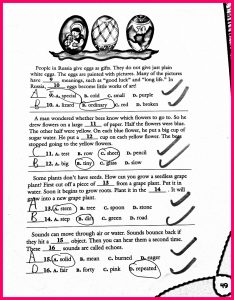 People in Russia give eggs as gifts. They do not give just plain
white eggs. The eggs are painted with pictures. Many of the pictures
have 9 meanings, such as "good luck" and "long life." In
Russia, 10 eggs become little works of art!
A 9. A. special B. cold C. small D. purple
B 10. A. lizard B. ordinary C. red D. broken
A man wondered whether bees know which flowers to go to. So he
drew flowers on a large 11 of paper. Half the flowers were blue.
The other half were yellow. On each blue flower, he put a big cup of
sugar water. He put a 12 cup on each yellow flower. The bees
stopped going to the yellow flowers.
11. A. test B. row C. sheet D. pencil
B 12. A. big B. tiny C. glass D. slow
Some plants don't have seeds. How can you grow a seedless grape
plant? First cut off a piece of 13 from a grape plant. Put it in
water. Soon it begins to grow roots. Plant it in the 14. It will
grow into a new grape plant.
A 13. A. stem B. tree C. spoon D. stone
14. A. step B. dirt C. green D. road
Sounds can move through air or water. Sounds bounce back if
they hit a 15 object. Then you can hear them a second time.
These 16 sounds are called echoes.
A 15. A. solid B. mean C. burned D. eager
D 16. A. fair B. forty C. pink D. repeated
49